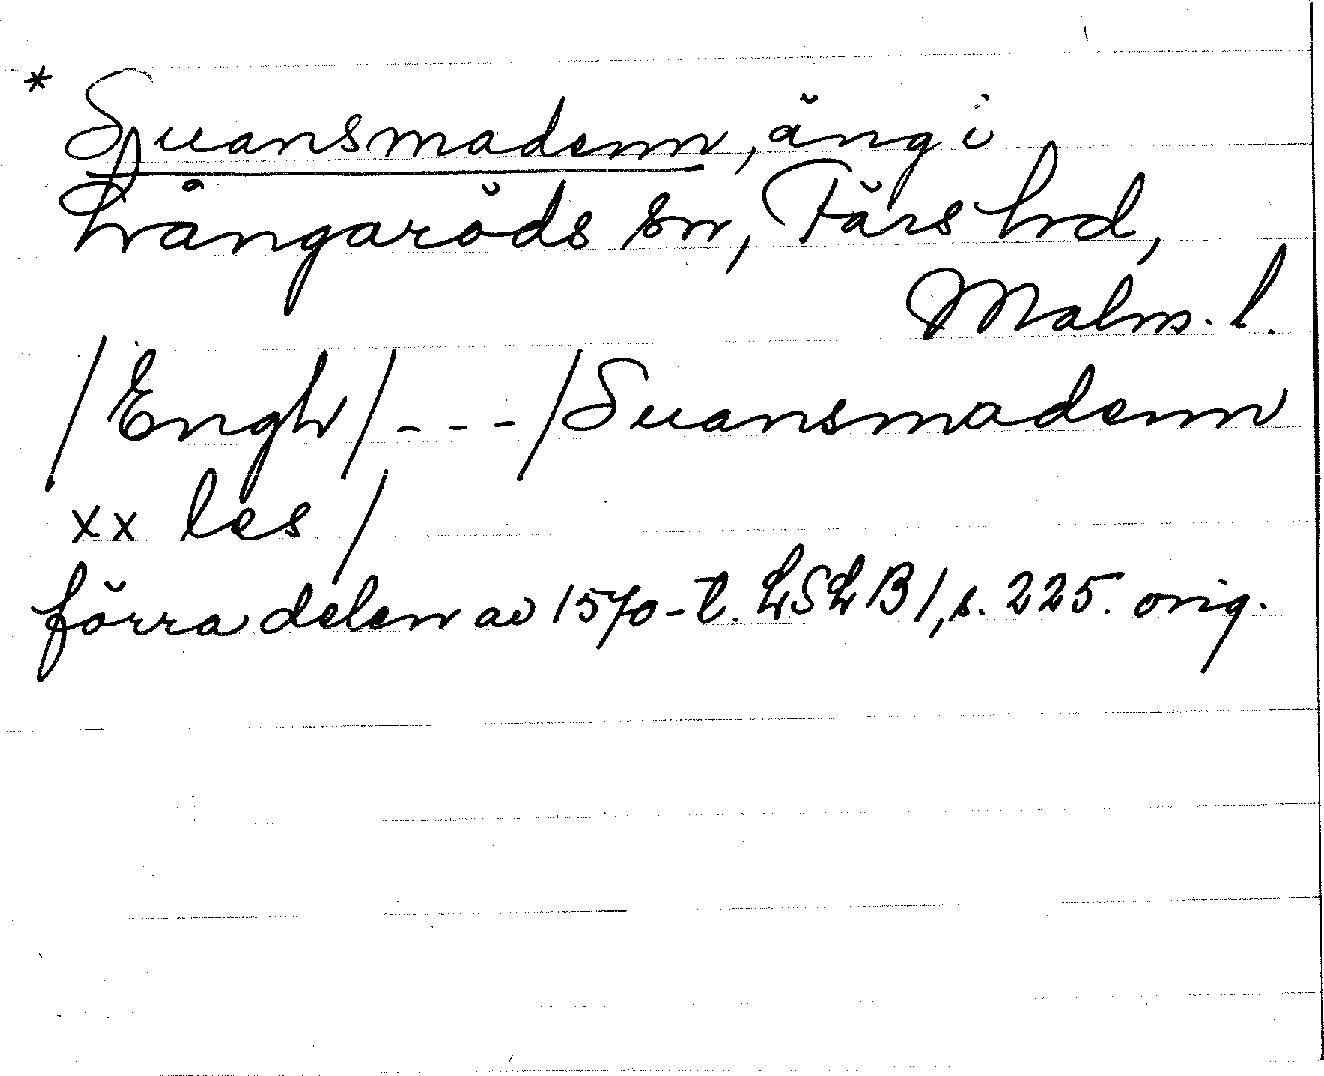 * Suansmadenn, äng i
Långaröds sn, Färs hd,
Malm. l.
/Engh/ - - - /Suansmadenn
xx les/
förra delen av 1570-t. LSLB 1, s. 225. orig.